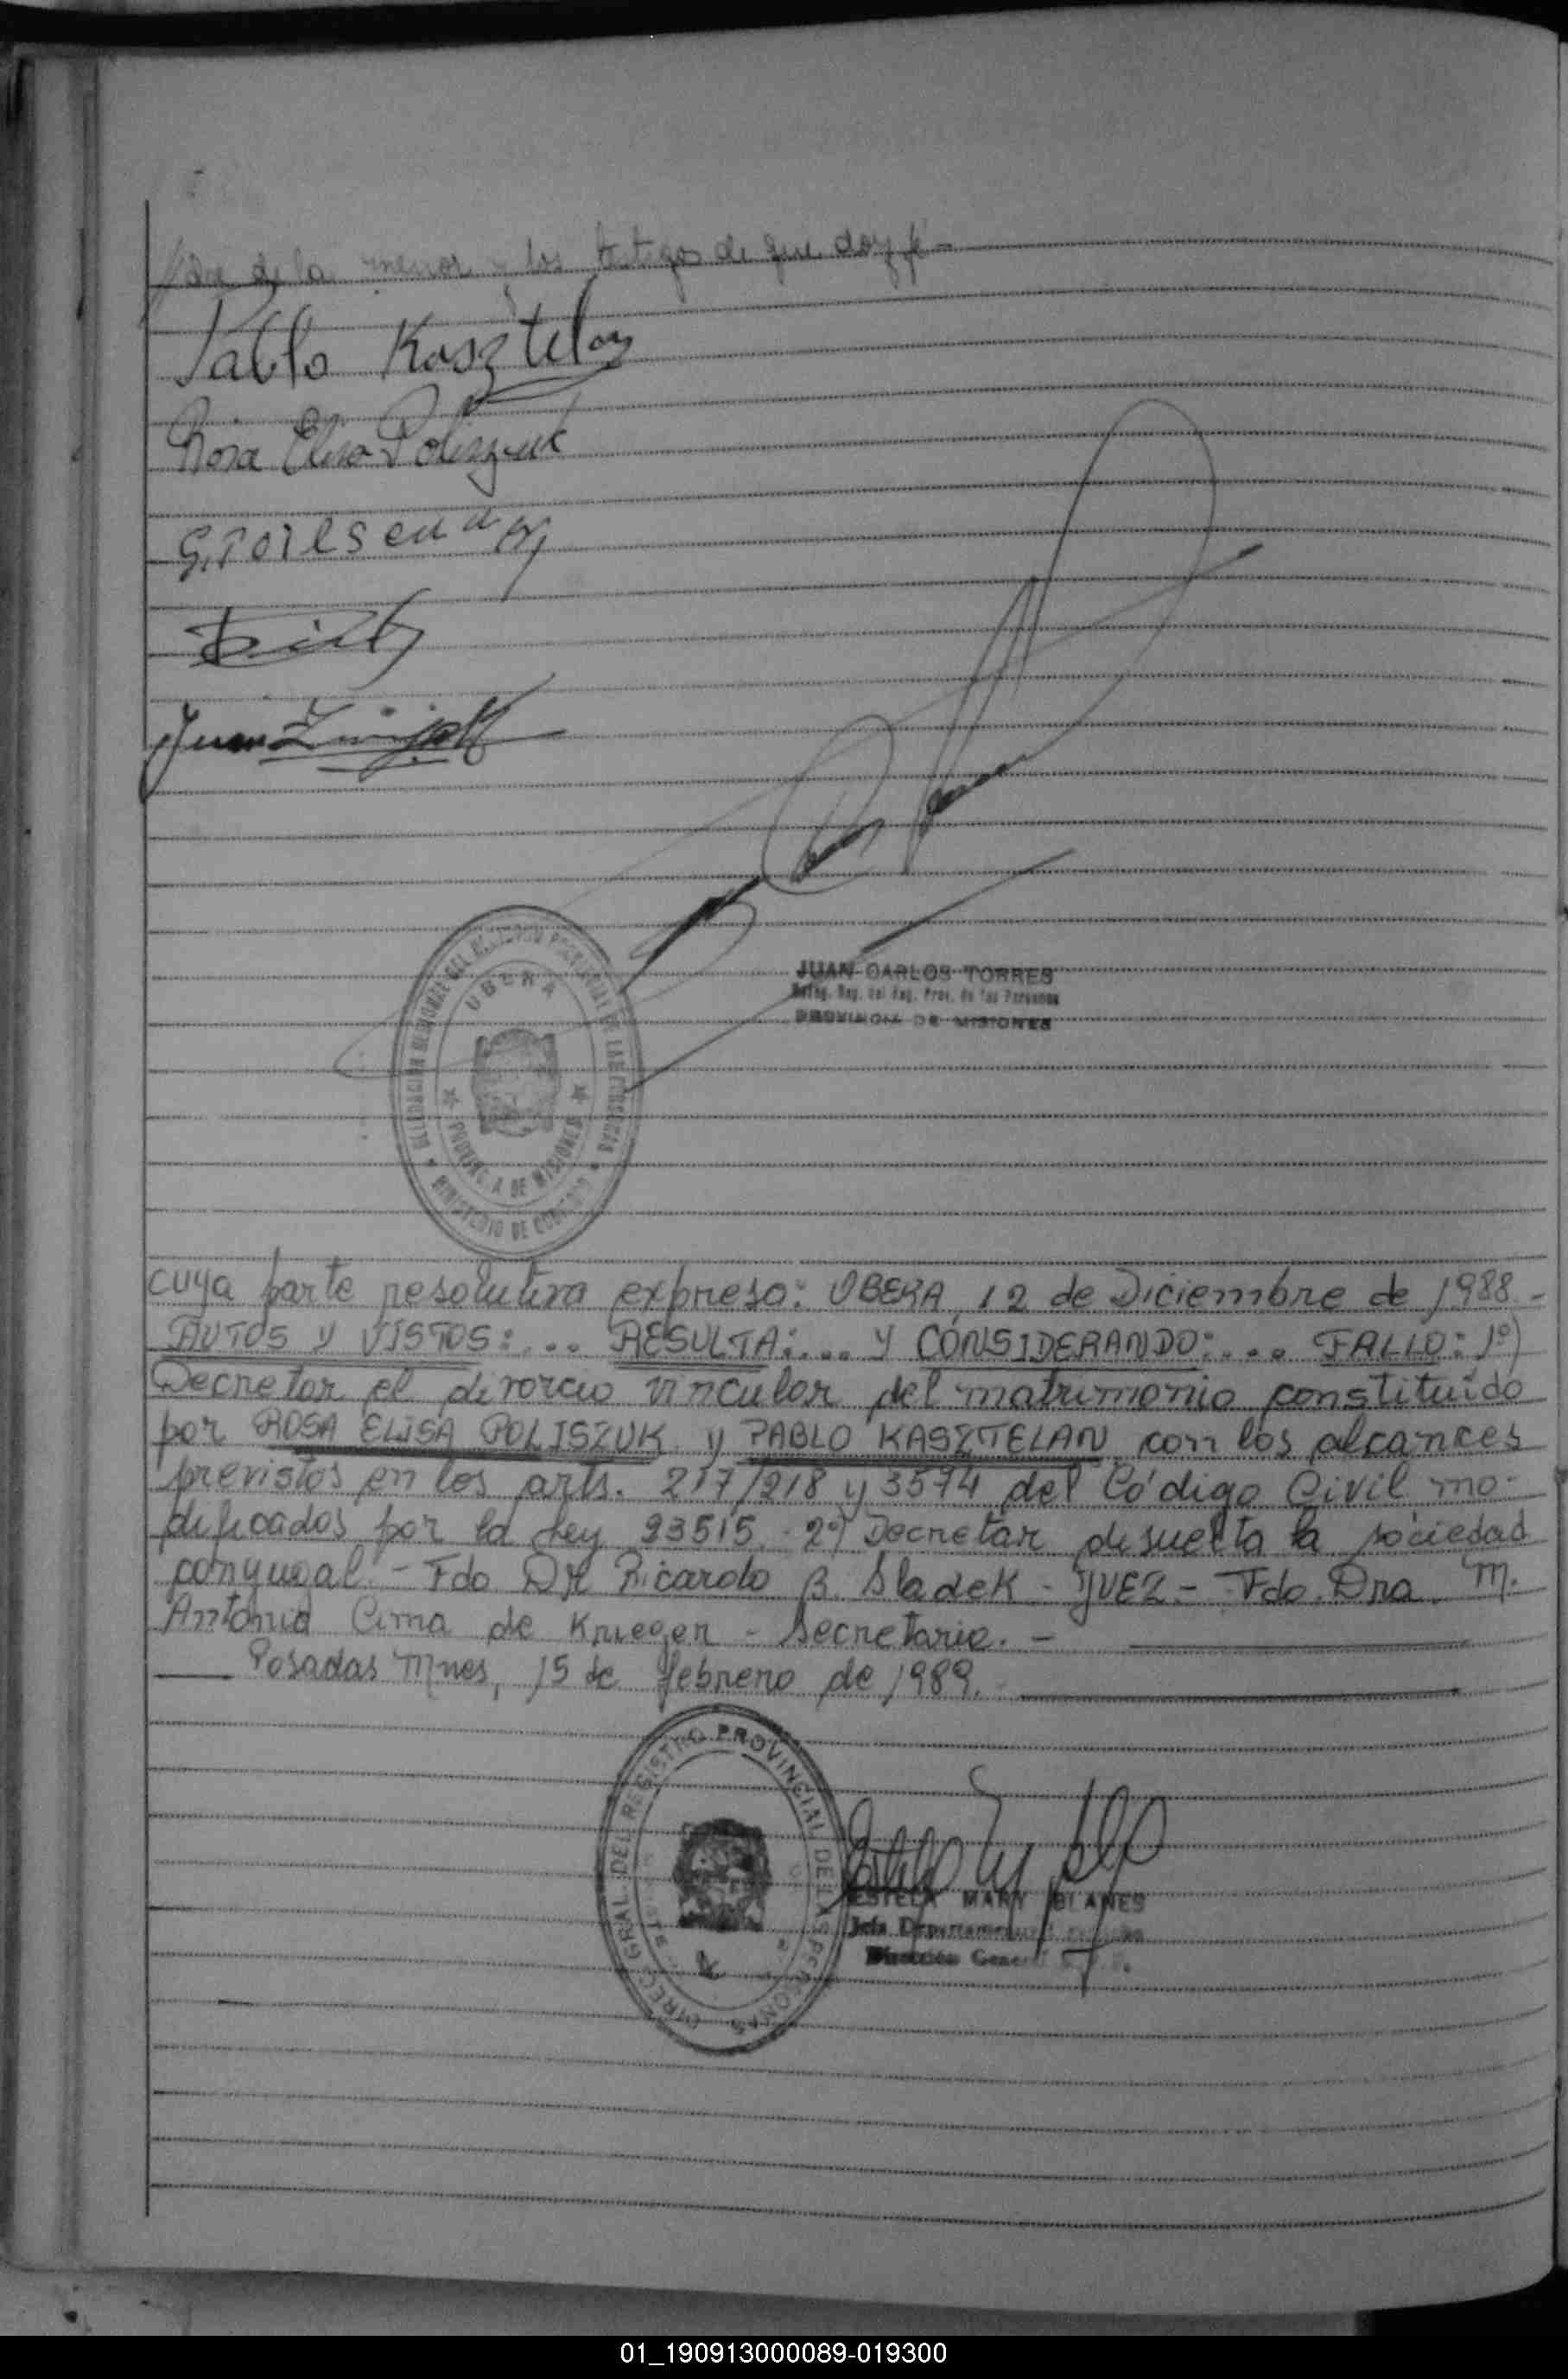 dre de la menor y los testigos de que doy fé -
Pablo Kasztelan
Rosa Elisa Poliszuk
DELEGACION REGIONAL DEL REGISTRO PROVINCIAL DE LAS PERSONAS
OBERA
PROVINCIA DE MISIONES
MINISTERIO DE GOBIERNO
JUAN CARLOS TORRES
Deleg. Reg. del Reg. Prov. de las Personas
PROVINCIA DE MISIONES
cuya parte resolutiva expresa: OBERA, 12 de Diciembre de 1988.-
AUTOS Y VISTOS:.... RESULTA:.... Y CONSIDERANDO:.... FALLO: 1º)
Decretar el divorcio vincular del matrimonio constituído
por ROSA ELISA POLISZUK y PABLO KASZTELAN con los alcances
previstos en los arts. 217/218 y 3574 del Código Civil mo-
dificados por la ley 23515.- 2º) Decretar disuelta la sociedad
conyugal.- Fdo Dr Ricardo B. Sladek - JUEZ.- Fdo. Dra. M.
Antonia Cima de Krieger - Secretaria. -
Posadas Mnes, 15 de febrero de 1989.
DIREC. GRAL. DEL REGISTRO PROVINCIAL DE LAS PERSONAS
ESTELA MARY BLANES
Jefa Departamento
Dirección General
01_190913000089-019300